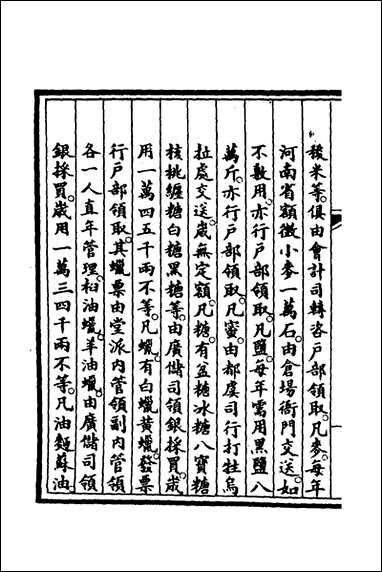 稜米等。俱由會計司轉咨戸部領取。凡麥。每年
河南省額徵小麥一萬石。由倉場衙門交送。如
不敷用。亦行戸部領取。凡鹽。每年需用黑鹽八
萬斤。亦行戸部領取。凡蜜。由都虞司行打牲烏
拉處交送。歲無定額。凡糖。有盆糖冰糖八寶糖
核桃纏糖白糖黑糖等。由廣儲司領銀採買。歲
用一萬四五千兩不等。凡蠟。有白蠟黃蠟。發票
行戸部領取。其蠟票由堂派內管領副內管領
各一人直年管理。桕油蠟。羊油蠟。由廣儲司領
銀採買。歲用一萬三四千兩不等。凡油麵蘇油